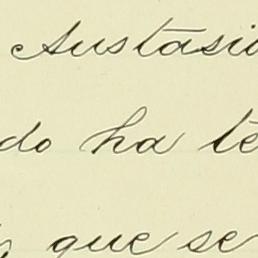 Austasio
do ha te
que se